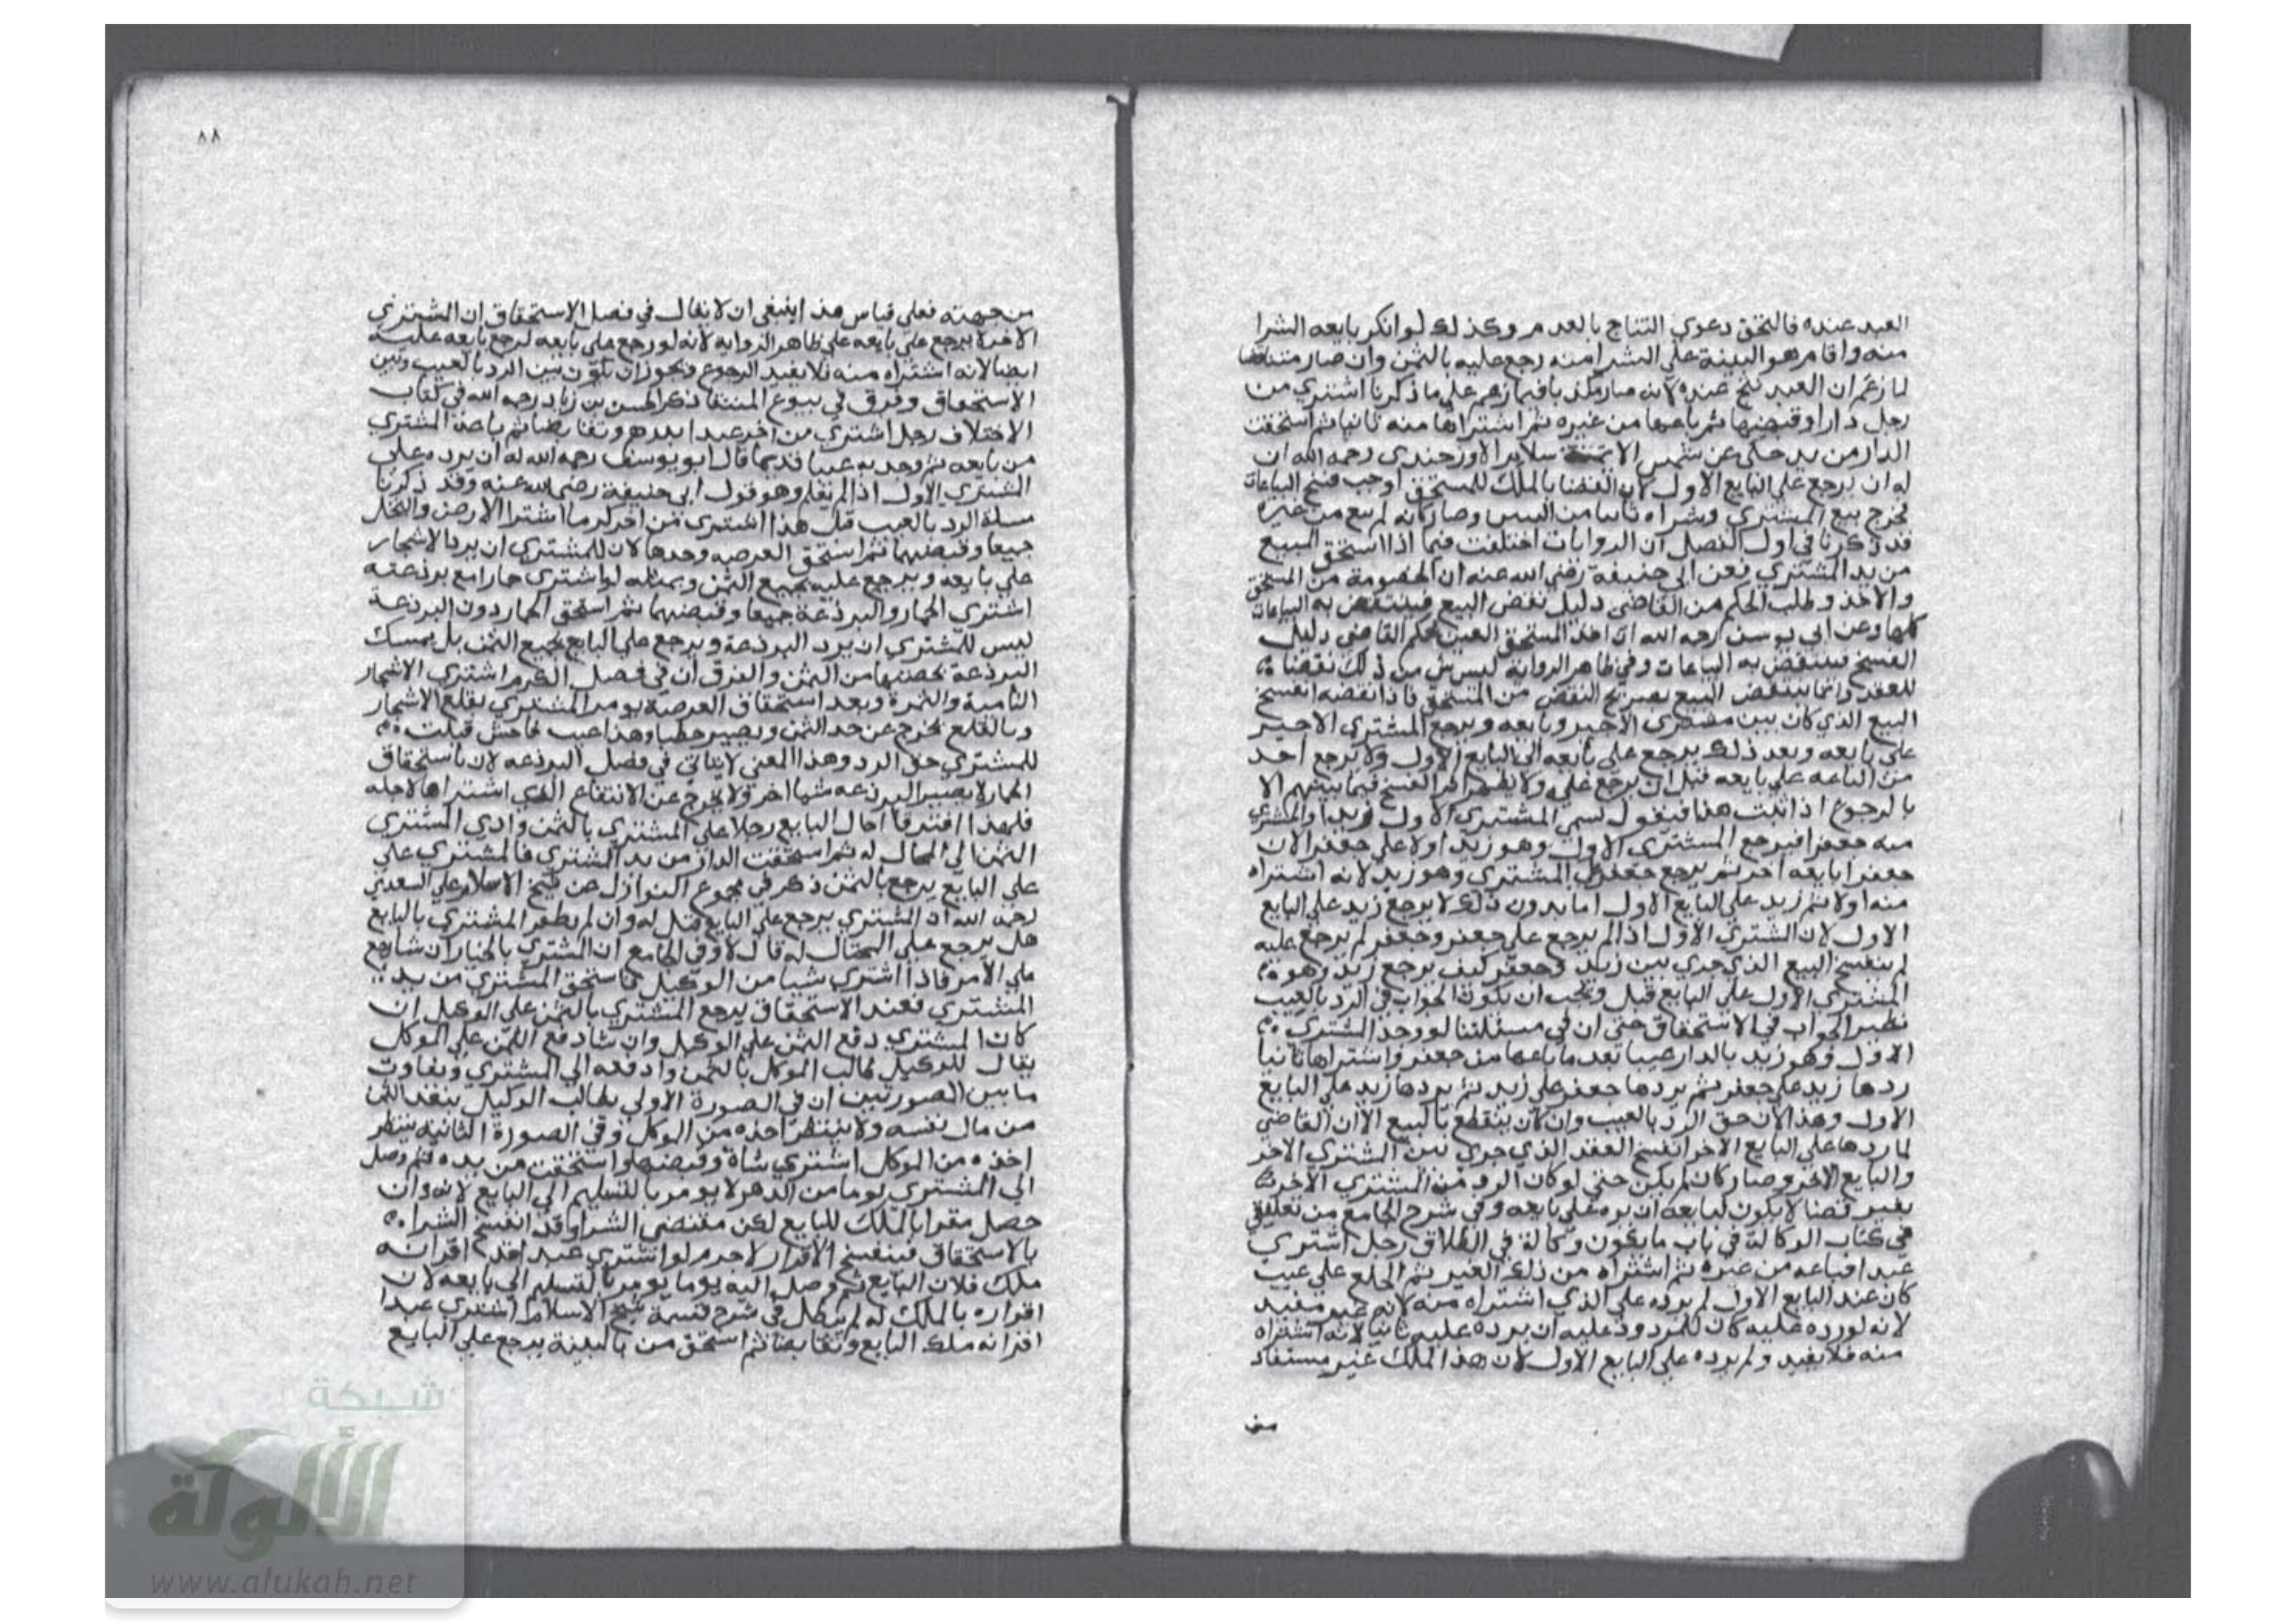 العبد عنده فالتحق دعوي التناج بالعدم وكذلك لو انكر بايعه الشرا
منه واقام هو البينة علي الشرا منه رجع عليه بالثمن وان صار متناقضا
لما زعم ان العبد نتج عنده لانه صار مكذبا فيما زعم علي ما ذكرنا اشتري من
رجل دارا وقبضها ثم باعها من غيره ثم اشتراها منه ثانيا ثم استحقت
الدار من يده حكي عن شمس الايمة الاوزجندي رحمه الله ان
له ان يرجع علي البايع الاول لان القضا بالملك للمستحق اوجب فسخ البياعات
فخرج بيع المشتري وشراه ثانيا من البين وصار كانه لم يبع من غيره
قد ذكرنا في اول الفصل ان الروايات اختلفت فيما اذا استحق المبيع
من يد المشتري فعن ابي حنيفة رضي الله عنه ان الخصومة من المستحق
والاخذ وطلب الحكم من القاضي دليل نقض البيع فينتقض به البياعات
كلها وعن ابي يوسف رحمه الله ان اخذ المستحق العين بحكم القاضي دليل
الفسخ فينتقض به البياعات وفي ظاهر الرواية ليس شي من ذلك نقضا
للعقد وانما ينتقض البيع بصريح النقض من المستحق فاذا نقضه انفسخ
البيع الذي كان بين مشتري الاخير وبايعه ويرجع المشتري الاخير
علي بايعه وبعد ذلك يرجع علي بايعه الي البايع الاول ولا يرجع احد
من الباعه علي بايعه قبل ان يرجع عليه ولا يظهر اثر الفسخ فيما بينهم الا
بالرجوع اذا ثبت هذا فنقول لسمي المشتري الاول زيدا والمشتري
منه جعفرا فيرجع المشتري الاول وهو زيد اولا علي جعفر لان
جعفرا بايعه اخر ثم يرجع جعفر علي المشتري وهو زيد لانه اشتراه
منه اولا ثم زيد علي البايع الاول اما بدون ذلك لا يرجع زيد علي البايع
الاول لان المشتري الاول اذا لم يرجع علي جعفر وجعفر لم يرجع عليه
لم ينفسخ البيع الذي جري بين زيد وجعفر كيف يرجع زيد وهو
المشتري الاول علي البايع قبل ويجب ان يكون الجواب في الرد بالعيب
نظير الجواب في الاستحقاق حتي ان في مسئلتنا لو وجد المشتري
الاول وهو زيد بالدار عيبا بعد ما باعها من جعفر واشتراها ثانيا
ردها زيد علي جعفر ثم يردها جعفر علي زيد ثم يردها زيد علي البايع
الاول وهذا لان حق الرد بالعيب وان كان ينقطع بالبيع الا ان القاضي
لما ردها علي البايع الاخر انفسخ العقد الذي جري بين المشتري الاخر
والبايع الاخر وصار كان لم يكن حتي لو كان الرد من المشتري الاخر
بغير قضا لا يكون لبايعه ان يرده علي بايعه وفي شرح الجامع من تعليق
في كتاب الوكالة في باب ما يكون وكالة في الطلاق رجل اشتري
عبدا فباعه من غيره ثم اشتراه من ذلك الغير ثم اطلع علي عيب
كان عند البايع الاول لم يرده علي الذي اشتراه منه لانه غير مفيد
لانه لو رده عليه كان للمردود عليه ان يرده عليه ثانيا لانه اشتراه
منه فلا يفيد ولم يرده علي البايع الاول لان هذا الملك غير مستفاد
من
٨٨
من جهته فعلي قياس هذا ينبغي ان لا يقال في فصل الاستحقاق ان المشتري
الاخر لا يرجع علي بايعه علي ظاهر الرواية لانه لو رجع علي بايعه لرجع بايعه عليه
ايضا لانه اشتراه منه فلا يفيد الرجوع فيجوز ان يكون بين الرد بالعيب وبين
الاستحقاق وفرق في بيوع المنتقا ذكر الحسن بن زياد رحمه الله في كتاب
الاختلاف رجل اشتري من اخر عبدا بدرهم وتقابضا ثم باعه المشتري
من بايعه ثم وجد به عيبا قديما قال ابو يوسف رحمه الله له ان يرده علي
المشتري الاول اذا لم يعلم وهو قول ابي حنيفة رضي الله عنه وقد ذكرنا
مسلة الرد بالعيب قبل هذا اشتري من اخر كرما اشترا الارض والنخل
جميعا وقبضهما ثم استحق العرصه وحدها لان للمشتري ان يرد الاشجار
علي بايعه ويرجع عليه بجميع الثمن وبمثله لو اشتري حمارا مع برذعته
اشتري الحمار والبرذعة جميعا وقبضهما ثم استحق الحمار دون البرذعة
ليس للمشتري ان يرد البرذعة ويرجع علي البايع بجميع الثمن بل يمسك
البرذعة بحصتها من الثمن والفرق ان في فصل الكرم اشتري الاشجار
النامية والثمرة وبعد استحقاق العرصة يومر المشتري بقلع الاشجار
وبالقلع يخرج عن حد الثمن ويصير حطبا وهذا عيب فاحش فيثبت
للمشتري حق الرد وهذا المعني لا يتاتي في فصل البرذعه لان باستحقاق
الحمار لا يصير البرذعه شيا اخر ولا يخرج عن الانتفاع الذي اشتراها لاجله
فلهذا افترقا احال البايع رجلا علي المشتري بالثمن وادي المشتري
الثمن الي المحال له ثم استحقت الدار من يد المشتري فالمشتري علي
علي البايع يرجع بالثمن ذكر في مجموع النوازل عن شيخ الاسلام علي السغدي
رحمه الله ان المشتري يرجع علي البايع قيل له وان لم يظفر المشتري بالبايع
هل يرجع علي المحتال له قال لا وفي الجامع ان المشتري بالخيار ان شا رجع
علي الامر فاذا اشتري شيا من الوكيل فاستحق المشتري من يد
المشتري فعند الاستحقاق يرجع المشتري بالثمن علي الوكيل ان
كان المشتري دفع الثمن علي الوكيل وان شا دفع الثمن علي الموكل
يقال للوكيل طالب الموكل بالثمن وادفعه الي المشتري وتفاوت
ما بين الصورتين ان في الصورة الاولي يطالب الوكيل بنقد الثمن
من مال نفسه ولا ينتظر اخذه من الموكل وفي الصورة الثانية ينتظر
اخذه من الموكل اشتري شاة وقبضها واستحقت من يده ثم وصل
الي المشتري يوما من الدهر لا يومر بالتسليم الي البايع لانه وان
حصل مقرا بالملك للبايع لكن مقتضي الشرا وقد انفسخ الشرا
بالاستحقاق فينفسخ الاقرار لاجرم لو اشتري عبدا قد اقر انه
ملك فلان البايع ثم وصل اليه يوما يومر بالتسليم الي بايعه لان
اقراره بالملك له لم يبطل في شرح قسمة شيخ الاسلام اشتري عبدا
اقر انه ملك البايع وتقابضا ثم استحق من بالبينة يرجع علي البايع
شبكة
الألوكة
www.alukah.net